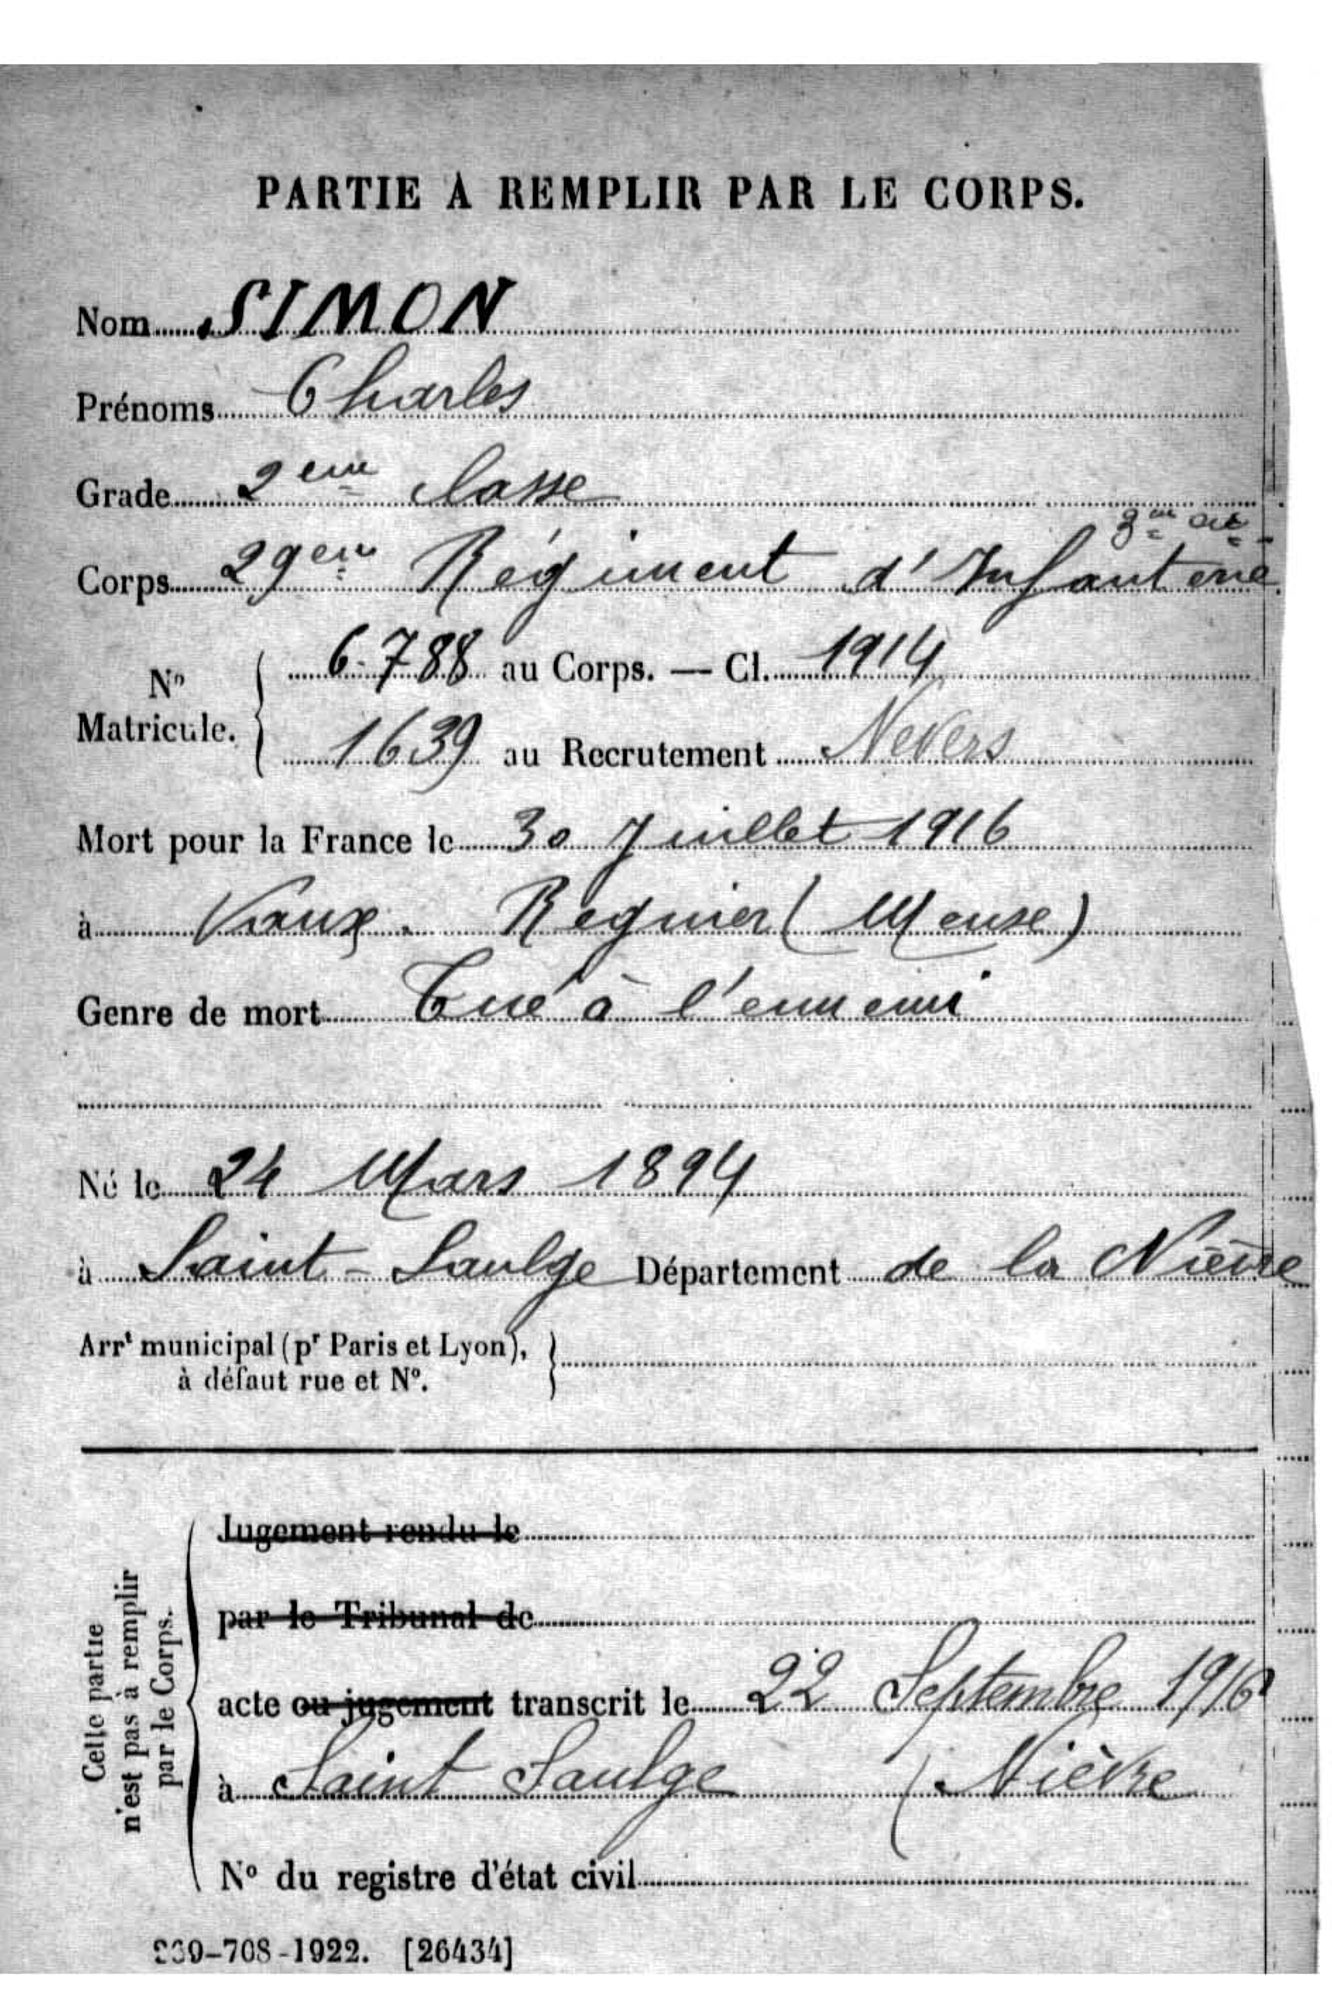 PARTIE À REMPLIR PAR LE CORPS.
Nom SIMON
Prénoms Charles
Grade 2eme classe
3me Cie
Corps 29eme Régiment d'Infanterie
No Matricule. { 6.788 au Corps. — Cl. 1914
1639 au Recrutement Nevers
Mort pour la France le 30 Juillet 1916
à Vaux. Regnier (Meuse)
Genre de mort Tué à l'ennemi
Né le 24 Mars 1894
à Saint-Saulge Département de la Nièvre
Arrt municipal (pr Paris et Lyon), à défaut rue et No. }
Cette partie n'est pas à remplir par le Corps.
Jugement rendu le
par le Tribunal de
acte ou jugement transcrit le 22 Septembre 1916
à Saint Saulge (Nièvre
No du registre d'état civil
-708-1922. [26434]